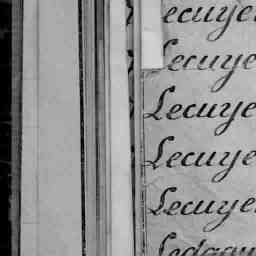 Lecuye
Lecuye
Lecuye
Lecuye
Lecuye